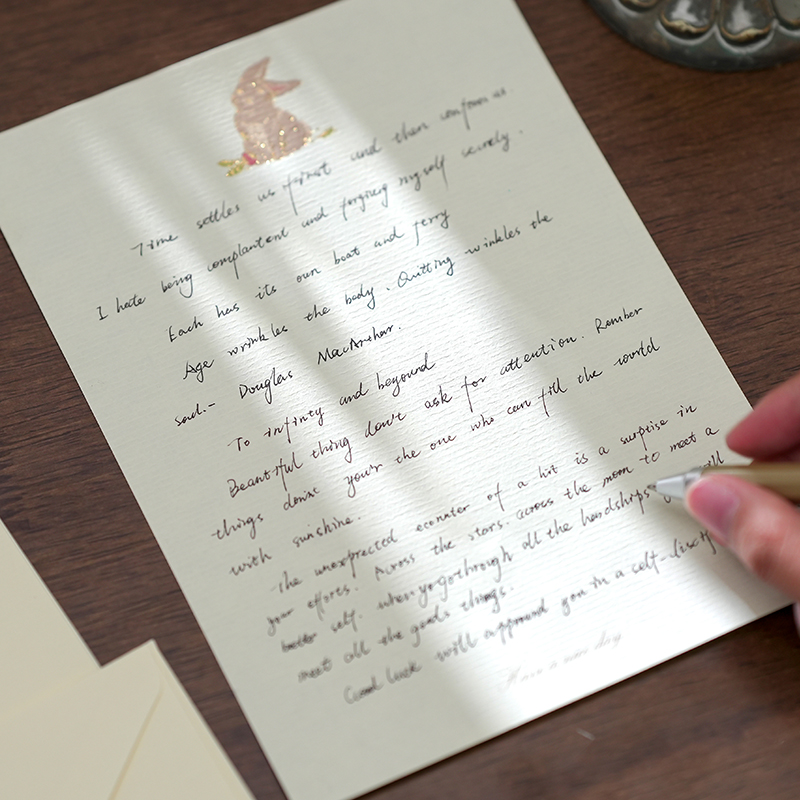 Time settles us first and then confuses us.
I hate being complantent and forgiving myself securely.
Each has its own boat and ferry
Age wrinkles the body. Quitting wrinkles the
soul.- Douglas MacArehar.
To infinty and beyound
Beautiful thing don't ask for attention. Rember
things you're the one who can fill the world
with sunshine.
The unexprected econter of a hit is a surprise in
your efforts. Across the stars. across the moon to meet a
better self. when yo go through all the hardships
meet all the goods things.
Good luck will approud you in a self-discip
Have a nice day